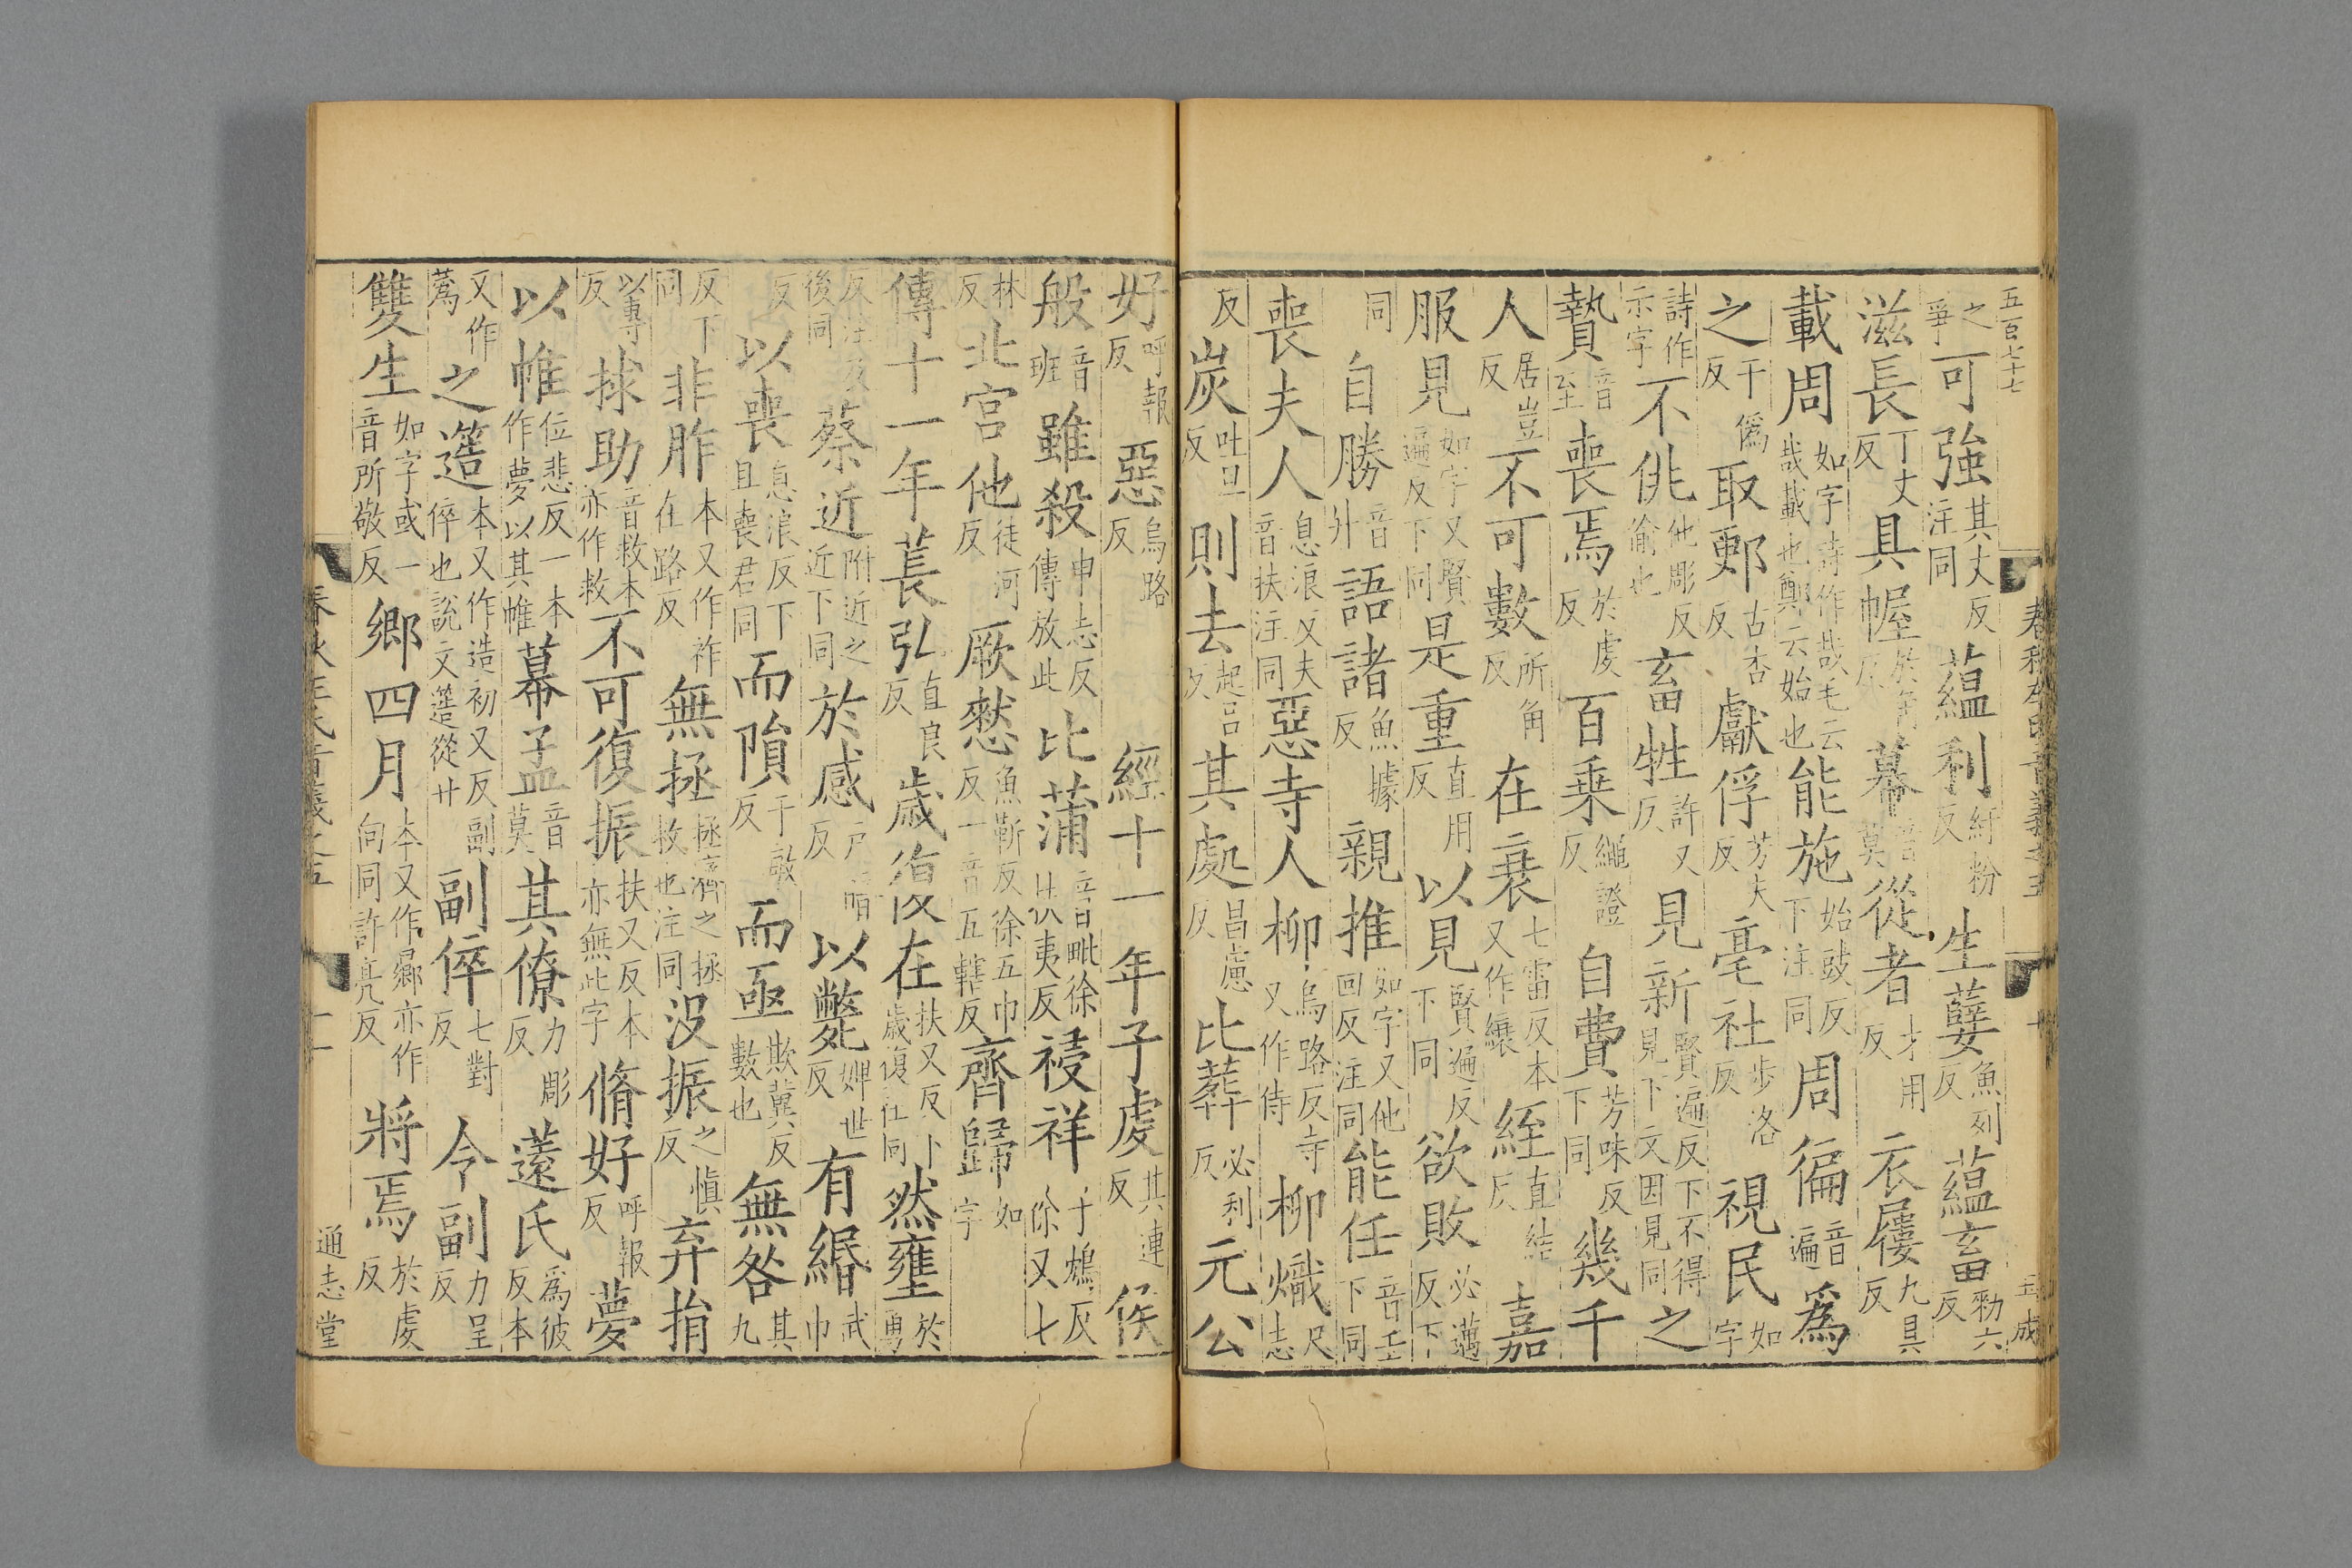 五百七十七
之爭可強其丈反注同蘊利紆粉反生孽魚列反蘊畜勑六反
滋長丁丈反具幄於角反幕音莫從者才用反衣屨九具反
載周如字詩作哉毛云哉載也鄭云始也能施始豉反下注同周徧音遍爲
之于僞反取郠古杏反獻俘芳夫反亳社步洛反視民如字
詩作示字不佻他彫反偷也畜牲許又反見新賢遍反下不得見下文因見同之
贄音至喪焉於虔反百乗繩證反自費芳味反下同幾千
人居豈反不可數所角反在衰七雷反本又作縗絰直結反嘉
服見如字又賢遍反下同是重直用反以見賢遍反下同欲敗必邁反下
同自勝音升語諸魚據反親推如字又他回反注同能任音壬下同
喪夫人息浪反又夫音扶注同惡寺人柳烏路反寺又作侍柳熾尺志
反炭吐旦反則去起呂反其處昌慮反比葬必利反元公
好呼報反惡烏路反經十一年子虔其連反侯
般音班雖殺申志反傳放此比蒲音毗徐扶夷反祲祥子鴆反徐又七
林反北宮他徒河反厥憖魚靳反徐五巾反一音五轄反齊歸如字
傳十一年萇弘直良反歲復在扶又反下歲復在同然壅於勇
反注及後同蔡近附近之近下同於感戶暗反以斃婢世反有緡武巾
反以喪息浪反下且喪君同而隕于敏反而亟欺冀反數也無咎其九
反下同非胙本又作祚在路反無拯拯濟之拯救也注同没振之愼反弃捐
以專反捄助音救本亦作救不可復振扶又反本亦無此字脩好呼報反夢
以帷位悲反一本作夢以其帷幕孟音莫其僚力彫反薳氏爲彼反本
又作蒍之簉本又作造初又反副倅也說文簉從廾副倅七對反令副力呈反
雙生如字或一音所敬反鄉四月本又作曏亦作向同許亮反將焉於虔反
通志堂